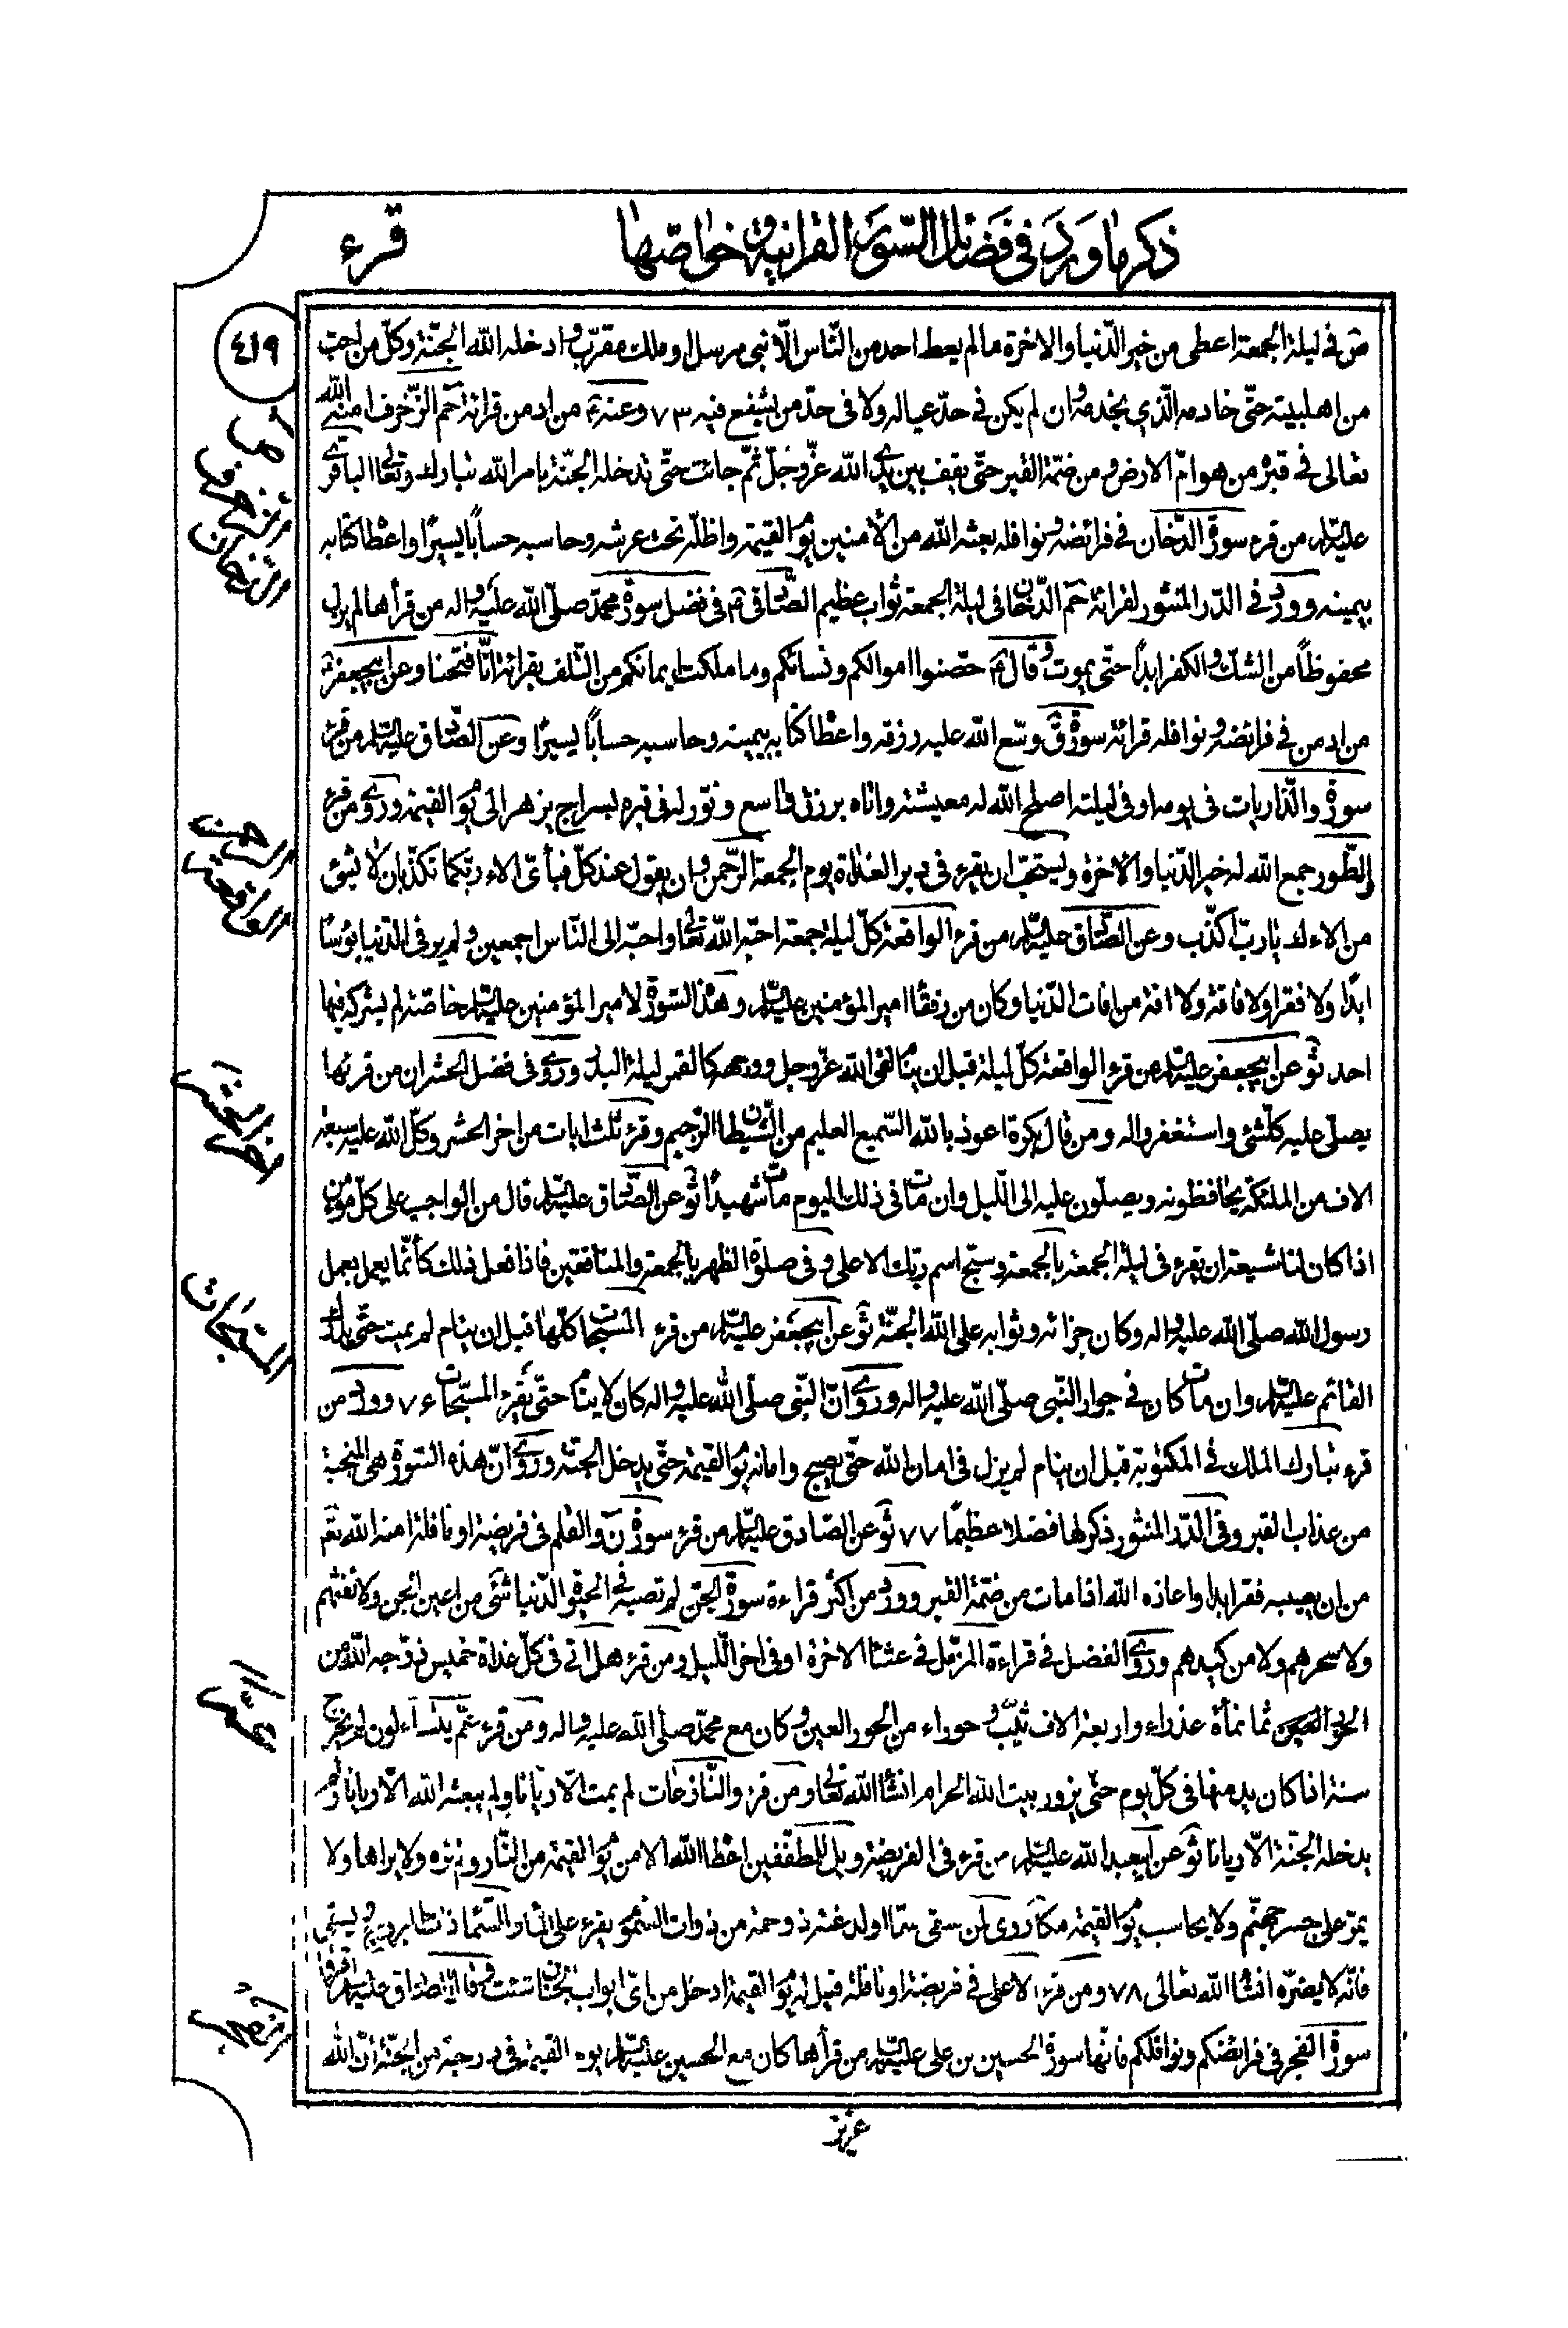 ذكر ما ورد في فضائل السّور القرانية وخواصّها
قرء
٤١٩
ص في ليلة الجمعة اعطى من خير الدّنيا والاخرة ما لم يعط احد من النّاس الّا نبى مرسل او ملك مقرّب وادخله الله الجنّة وكلّ من احبّ
من اهل بيته حتّى خادمه الّذي يخدمه وان لم يكن في حدّ عياله ولا فى حدّ من يشفع فيه ٧٣ وعنه ع من ادمن قرائة حم الزّخرف امنه الله
تعالى في قبره من هوامّ الارض ومن ضمّة القبر حتّى يقف بين يدى الله عزّ وجلّ ثمّ جائت حتّى تدخله الجنّة بامر الله تبارك وتعالى الباقر
عليه السّلام من قرء سورة الدّخان في فرائضه ونوافله بعثه الله من الامنين يوم القيمة واظلّه تحت عرشه وحاسبه حسابًا يسيرًا واعطا كتابه
بيمينه وورد في الدّر المنثور لقرائة حم الدّخان في ليلة الجمعة ثواب عظيم الصّادق ع في فضل سورة محمّد صلّى الله عليه واله من قرأها لم يزل
محفوظًا من الشّك والكفر ابدًا حتّى يموت وقال ع حصّنوا اموالكم ونسائكم وما ملكت ايمانكم من التّلف بقرائة انّا فتحنا وعن ابيجعفر ع
من ادمن في فرائضه ونوافله قرائة سورة ق وسّع الله عليه رزقه واعطا كتابه بيمينه وحاسبه حسابًا يسيرًا وعن الصّادق عليه السّلام من قرء
سورة والذّاريات فى يومه او فى ليلته اصلح الله له معيشته واتاه برزق واسع ونوّر له فى قبره بسراج يزهر الى يوم القيمة وروى من قرء
والطّور جمع الله له خير الدّنيا والاخرة ويستحبّ ان يقرء فى دبر الغداة يوم الجمعة الرّحمن وان يقول عند كلّ فبأىّ الاء ربّكما تكذّبان لا بشئ
من الائك يا ربّ اكذّب وعن الصّادق عليه السّلام من قرء الواقعة كلّ ليلة جمعة احبّه الله تعالى واحبّه الى النّاس اجمعين ولم ير فى الدّنيا بؤسًا
ابدًا ولا فقرا ولا فاقة ولا افة من افات الدّنيا وكان من رفقاء امير المؤمنين عليه السّلام وهذه السّورة لامير المؤمنين عليه السّلام خاصّة لم يشركه فيها
احد ثو عن ابيجعفر عليه السّلام من قرء الواقعة كلّ ليلة قبل ان ينام لقى الله عزّ وجل ووجهه كالقمر ليلة البدر وروى فى فضل الحشر ان من قرئها
يصلّى عليه كلّ شئ واستغفر واله ومن قال بكرة اعوذ بالله السّميع العليم من الشّيطان الرّجيم وقرء ثلث ايات من اخر الحشر وكّل الله عليه سبعة
الاف من الملئكة يحافظونه ويصلّون عليه الى اللّيل وان مات فى ذلك اليوم مات شهيدًا ثو عن الصّادق عليه السّلام قال من الواجب على كلّ مؤمن
اذا كان لنا شيعة ان يقرء فى ليلة الجمعة بالجمعة وسبّح اسم ربّك الاعلى وفى صلوة الظهر بالجمعة والمنافقين فاذا فعل ذلك كأنّما يعمل بعمل
رسول الله صلّى الله عليه واله وكان جزائه وثوابه على الله الجنّة ثو عن ابيجعفر عليه السّلام من قرء المسبّحات كلّها قبل ان ينام لم يمت حتّى يدرك
القائم عليه السّلام وان مات كان فى جوار النّبى صلّى الله عليه واله وروى انّ النّبى صلّى الله عليه واله كان لا ينام حتّى يقرء المسبّحات ٧٤ وورد من
قرء تبارك الملك فى المكتوبة قبل ان ينام لم يزل فى امان الله حتّى يصبح وامانه يوم القيمة حتّى يدخل الجنّة وروى انّ هذه السّورة هى المنجية
من عذاب القبر وفى الدّر المنثور ذكر لها فضلا عظيمًا ٧٧ ثو عن الصّادق عليه السّلام من قرء سورة ن والقلم فى فريضة او نافلة امنه الله تعالى
من ان يصيبه فقر ابدا واعاذه الله اذا مات من ضمّة القبر وورد من اكثر قراءة سورة الجنّ لم تصبه فى الحيوة الدّنيا شئ من اعين الجن ولا نفثهم
ولا سحرهم ولا من كيدهم وروى الفضل فى قراءة المزّمّل فى عشاء الاخرة او فى اخر اللّيل ومن قرء هل اتى فى كلّ غداة خميس زوّجه الله من
الحور العين ثمانمأة عذراء واربعة الاف ثيّب وحوراء من الحور العين وكان مع محمّد صلّى الله عليه واله ومن قرء عمّ يتساءلون لم يخرج
سنة اذا كان يدمنها فى كلّ يوم حتّى يزور بيت الله الحرام انشاء الله تعالى ومن قرء والنّازعات لم يمت الّا ريّانا ولم يبعثه الله الّا ريّانا ولم
يدخله الجنّة الّا ريانا ثو عن ابيعبد الله عليه السّلام من قرء فى الفريضة ويل للمطفّفين اعطاه الله الامن يوم القيمة من النّار ولم تره ولا يراها ولا
يمرّ على جسر جهنّم ولا يحاسب يوم القيمة مكا روى لمن سقى سمّا او لدغته ذو حمة من ذوات السّموم يقرء على الماء والسّماء ذات البروج ويسقى
فانّه لا يضرّه انشاء الله تعالى ٧٨ ومن قرء الاعلى فى فريضة او نافلة قيل له يوم القيمة ادخل من اىّ ابواب الجنان شئت وقال الصّادق عليه السّلام اقرؤا
سورة الفجر فى فرائضكم ونوافلكم فانّها سورة الحسين بن على عليه السّلام من قرأها كان مع الحسين عليه السّلام يوم القيمة فى درجته من الجنّة انّ الله
عزيز
ص
الزخرف
الدّخان
الرحمن
الواقعة
الحشر
المسبّحات
عمّ